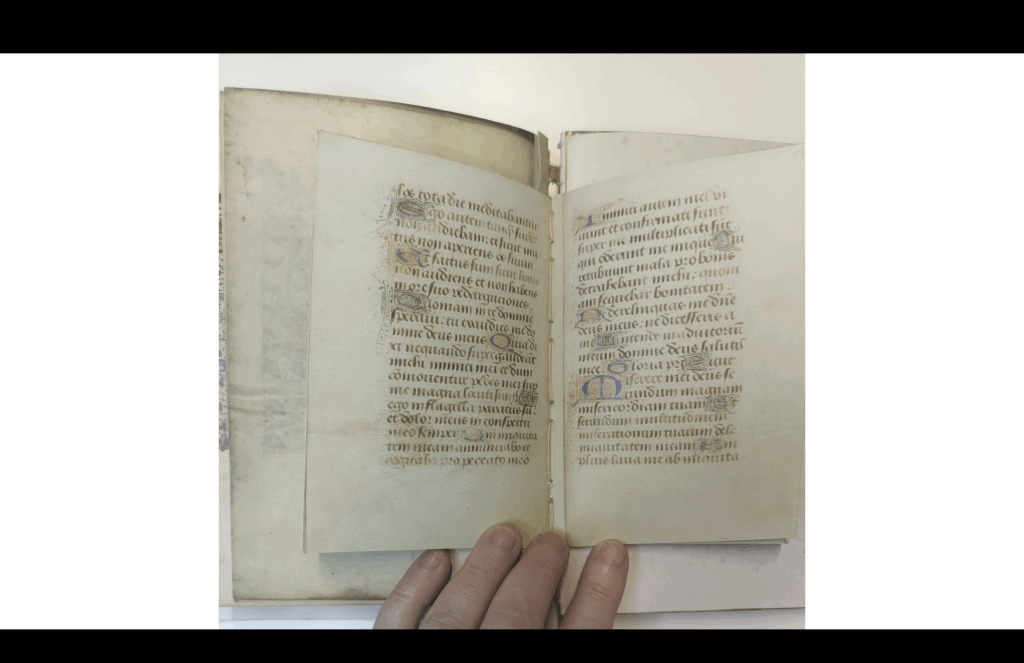 los tota die meditabantur
Ego autem tanq̄ surdus
non audiebam: et sicut mu
tus non aperiens os suum
Et factus sum sicut homo
non audiens et non habens
in ore suo redargutiones.
Quoniam in te domine
speravi: tu exaudies me do
mine deus meus. Quia di
xi nequando supergaudeāt
michi inimici mei et dum
cōmoventur pedes mei sup
me magna locuti sunt
ego in flagella paratus sū:
et dolor meus in conspectu
meo semper iniquita
tem meam annunciabo et
cogitabo pro peccato meo
Inimici autem mei vi
vunt et confirmati sunt
super me multiplicati sūt
qui oderunt me inique Qui
retribuunt mala pro bonis
detrahebant michi: quoni
am sequebar bonitatem.
Ne derelinquas me dñe
deus meus: ne discesseris a
me Intende in adiutoriū
meum domine deus salutis
mee. Gloria pri Sicut
Miserere mei deus se
cundum magnam
misericordiam tuam Et
secundum multitudinem
miserationum tuarum dele
iniquitatem meam Am
plius lava me ab iniquita